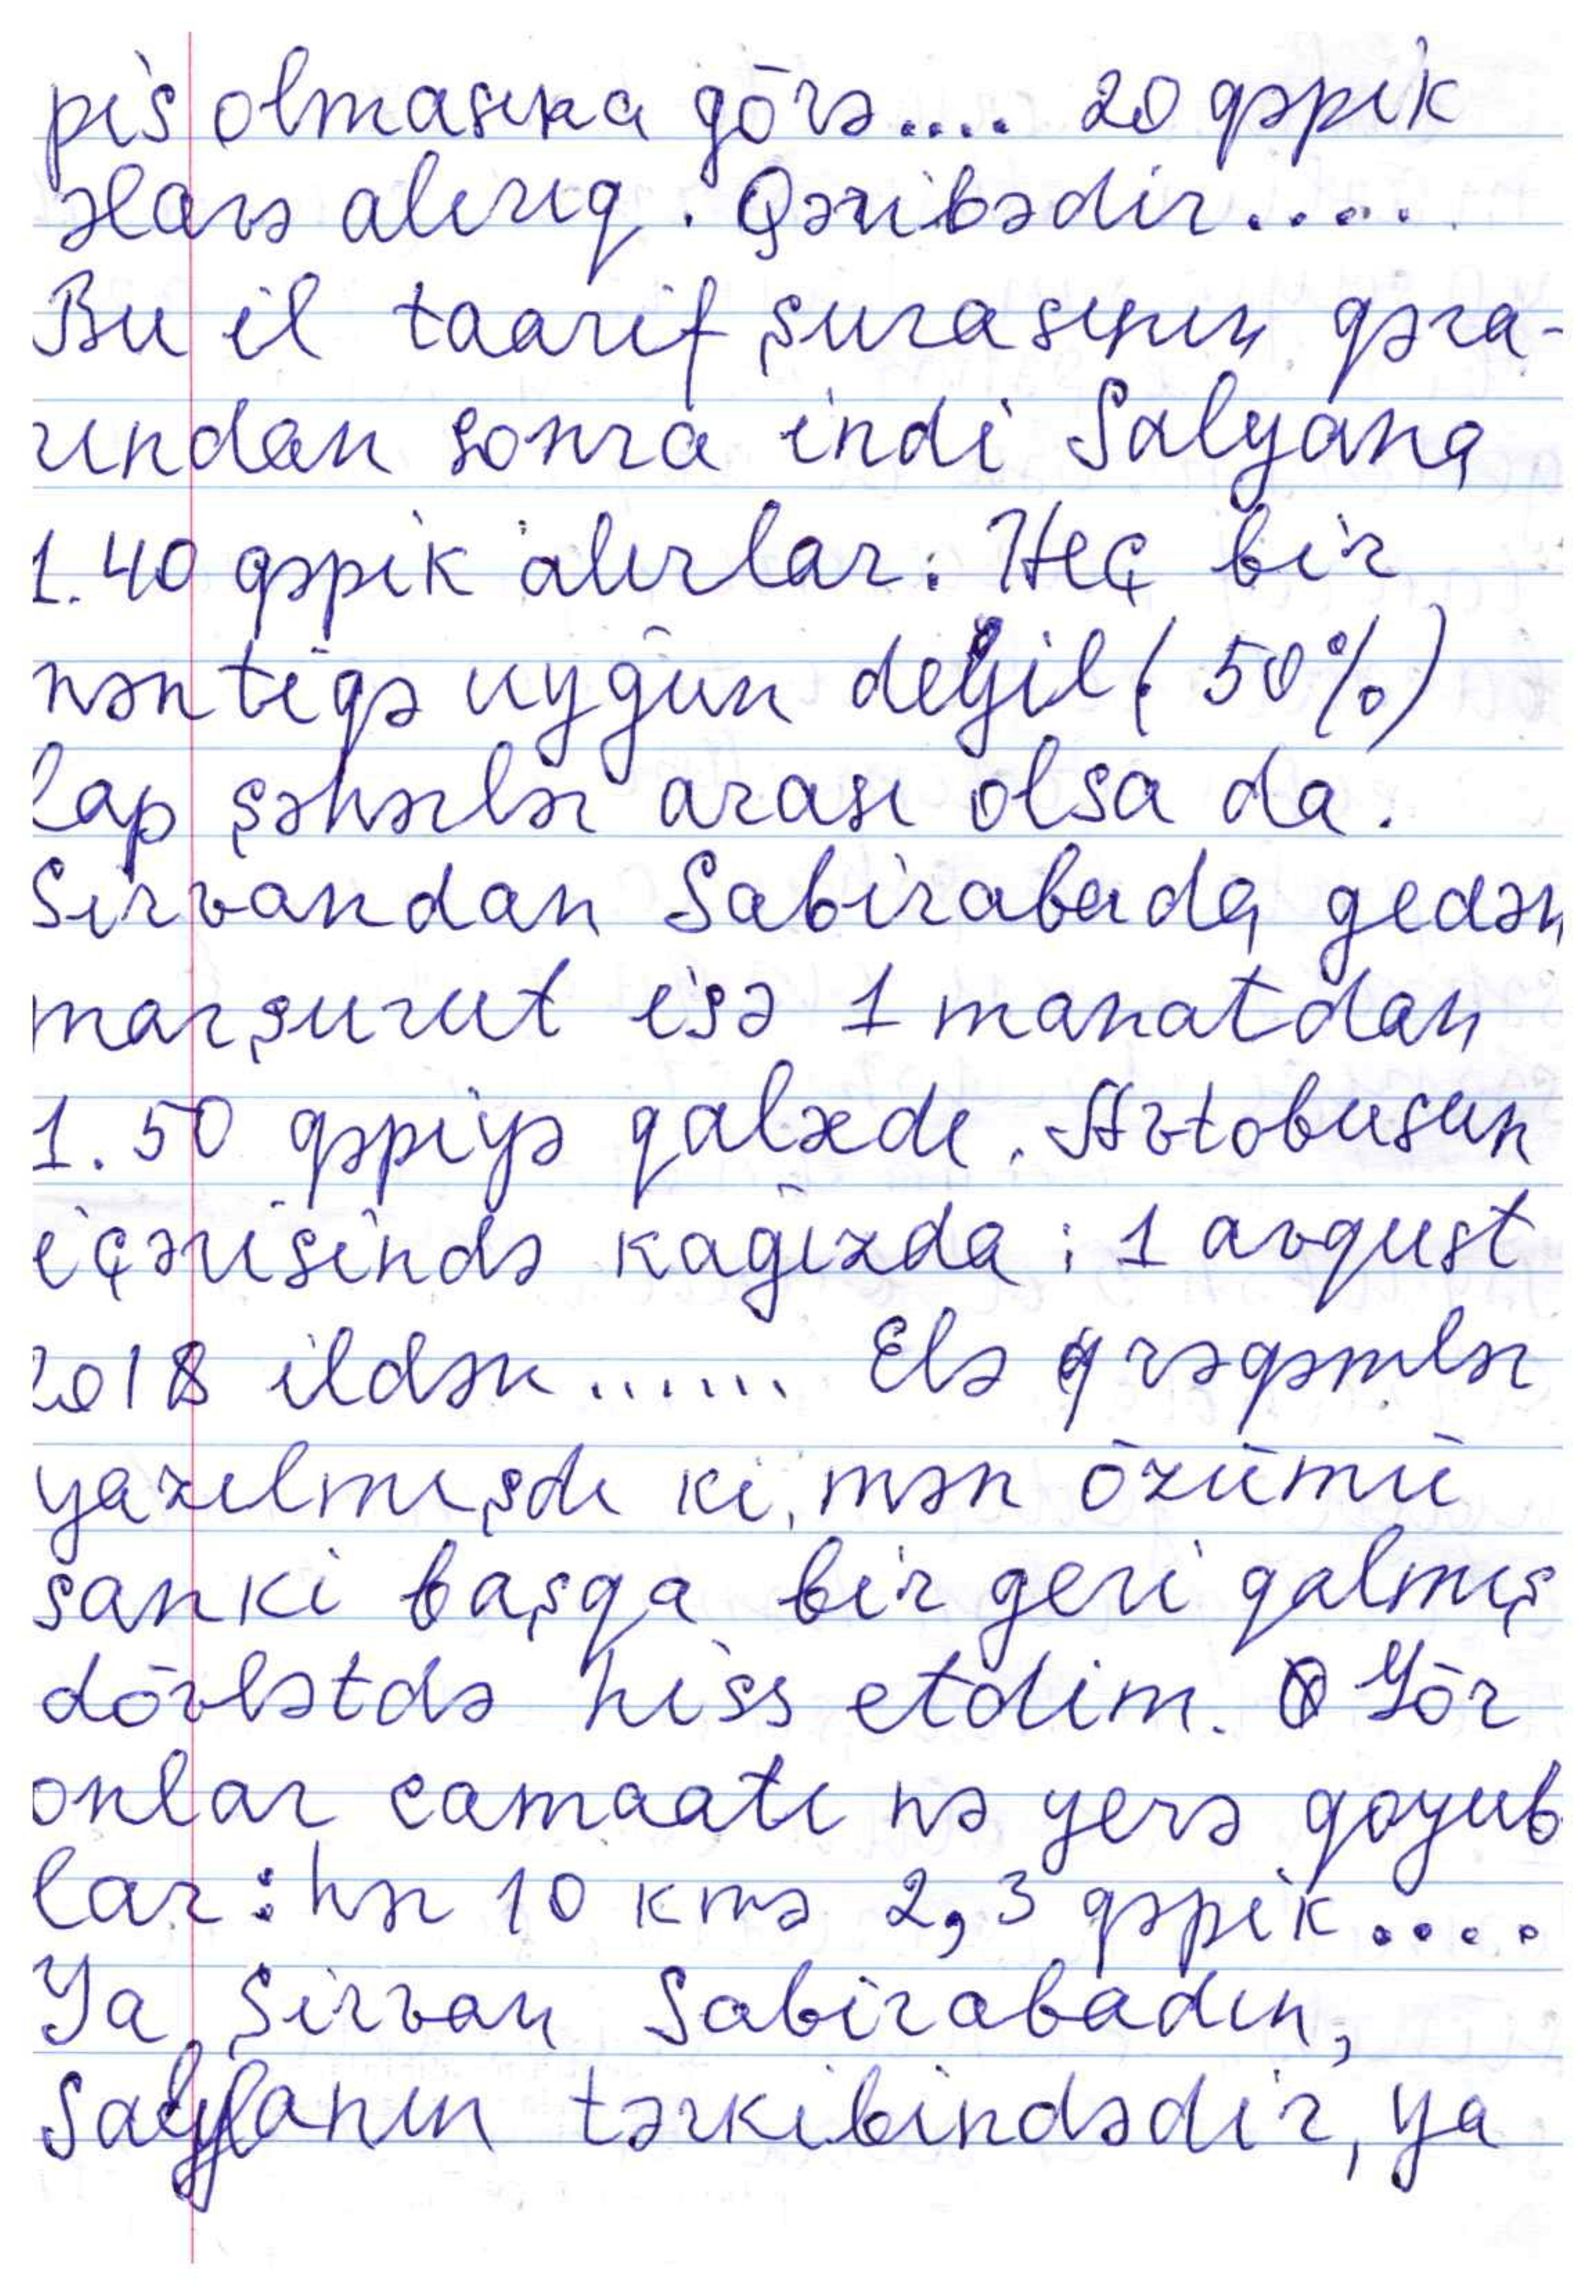 pis olmasına görə.... 20 qəpik
əlavə alırıq. Qəribədir.....
Bu il taarif şurasının qəra-
rından sonra indi Salyana
1.40 qəpik alırlar. Heç bir
məntiqə uyğun deyil (50%)
lap şəhərlər arası olsa da.
Şirvandan Sabirabada gedən
marşurut isə 1 manatdan
1.50 qəpiyə qalxdı. Avtobusun
içərisində kağızda : 1 avqust
2018 ildən ...... Elə rəqəmlər
yazılmışdı ki, mən özümü
sanki başqa bir geri qalmış
dövlətdə hiss etdim. Gör
onlar camaatı nə yerə qoyub
lar : hər 10 kmə 2,3 qəpik....
Ya Şirvan Sabirabadın,
Salyanın tərkibindədir, ya